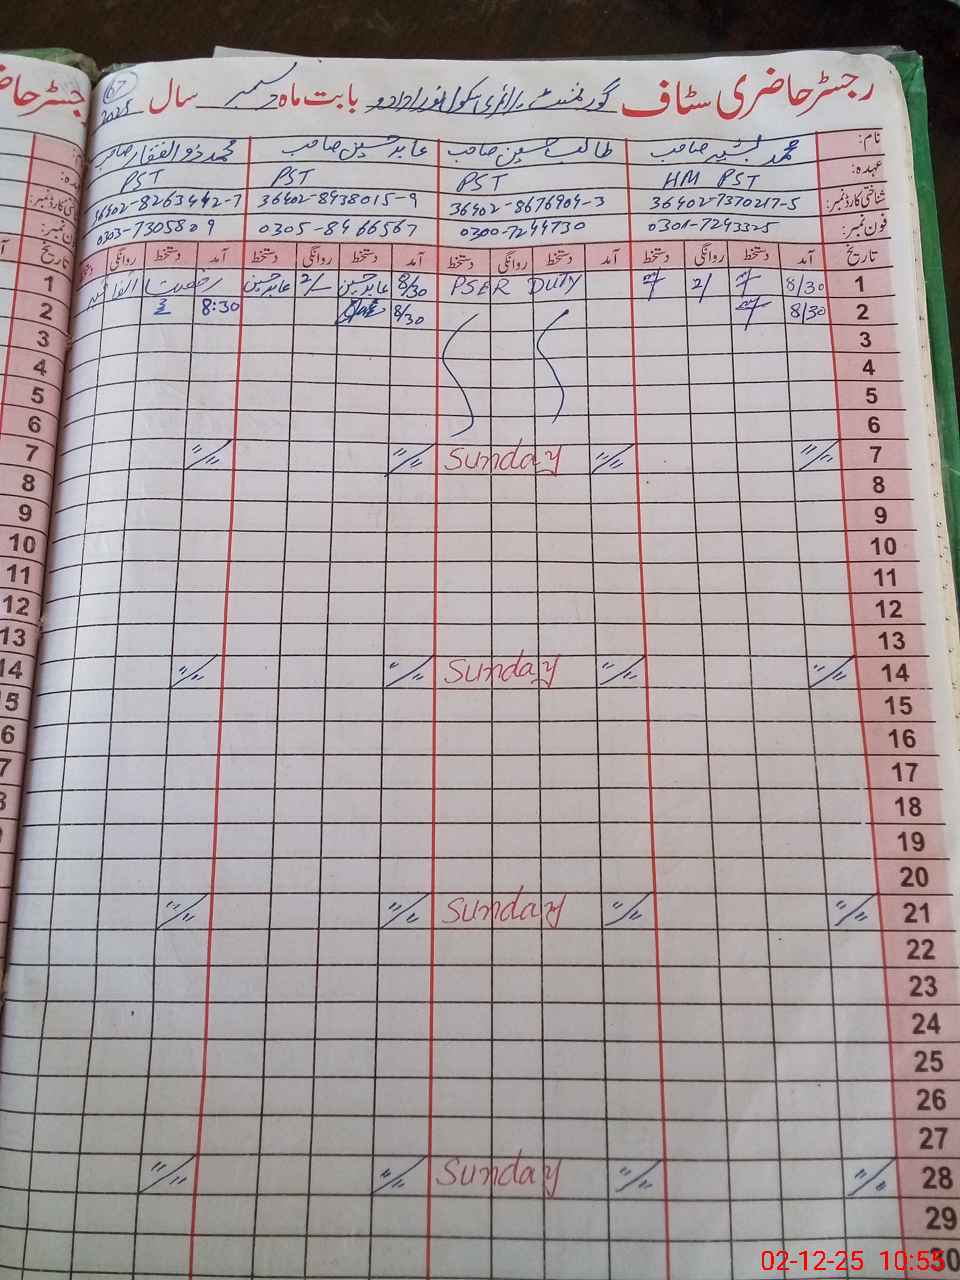 رجسٹر حاضری سٹاف گورنمنٹ پرائمری سکول بابت ماہ دسمبر سال 2025
67
نام: محمد بشیر صاحب طالب حسین صاحب عابد حسین صاحب محمد ذوالفقار صاحب
عہدہ: HM PST PST PST PST
شناختی کارڈ نمبر: 36402-7370217-5 36402-8676904-3 36402-8438015-9 36402-8263442-7
فون نمبر: 0301-7243325 0300-7244730 0305-8466567 0303-7305809
تاریخ آمد دستخط روانگی دستخط آمد دستخط روانگی دستخط آمد دستخط روانگی دستخط آمد دستخط روانگی
1 8/30 2/ PSER DUTY 8/30 عابد حسین 2/ عابد حسین رخصت اتفاقیہ
2 8/30 8/30 8:30
3
4
5
6
7 Sunday
8
9
10
11
12
13
14 Sunday
15
16
17
18
19
20
21 Sunday
22
23
24
25
26
27
28 Sunday
29
30
02-12-25 10:55